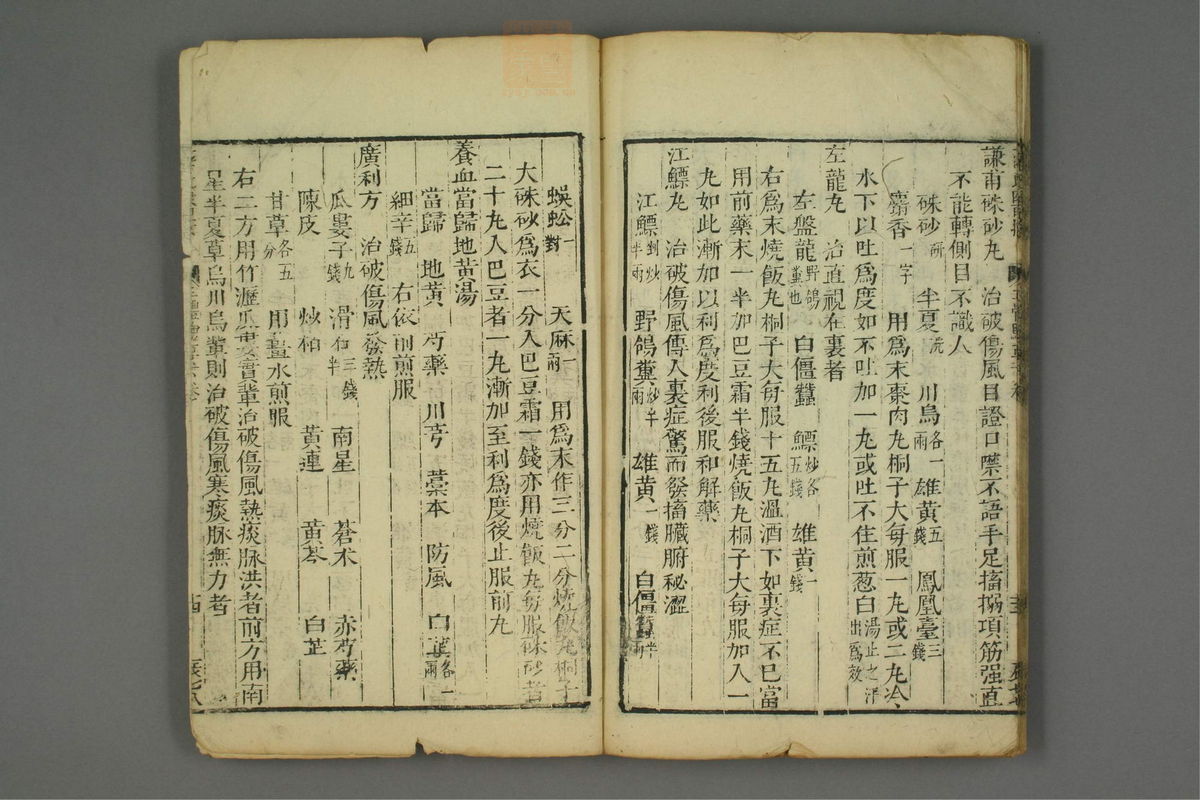 謙甫硃砂丸　治破傷風目證口噤不語手足搐搦項筋强直
不能轉側目不識人
硃砂研　半夏洗　川烏各一兩　雄黃五錢　鳳凰臺三錢
麝香一字　用爲末棗肉丸桐子大每服一丸或二丸冷
水下以吐爲度如不吐加一丸或吐不住煎葱白湯止之汗出爲效
左龍丸　治直視在裏者
左盤龍野鴿糞也　白僵蠶　鰾炒各五錢　雄黃一錢
右爲末燒飯丸桐子大每服十五丸溫酒下如裏症不已當
用前藥末一半加巴豆霜半錢燒飯丸桐子大每服加入一
丸如此漸加以利爲度利後服和解藥
江鰾丸　治破傷風傳入裏症驚而發搐臟腑秘澀
江鰾剉炒半兩　野鴿糞炒半兩　雄黃一錢　白僵蠶半兩
蜈蚣一對　天麻一兩　用爲末作三分二分燒飯丸桐子
大硃砂爲衣一分入巴豆霜一錢亦用燒飯丸每服硃砂者
二十丸入巴豆者一丸漸加至利爲度後止服前丸
養血當歸地黃湯
當歸　地黃　芍藥　川芎　藁本　防風　白芷各一兩
細辛五錢　右依前煎服
廣利方　治破傷風發熱
瓜蔞子九錢　滑石三錢半　南星　蒼朮　赤芍藥
陳皮　炒柏　黃連　黃芩　白芷
甘草各五分　用薑水煎服
右二方用竹瀝瓜蔞實輩治破傷風熱痰脉洪者前方用南
星半夏草烏川烏輩則治破傷風寒痰脉無力者